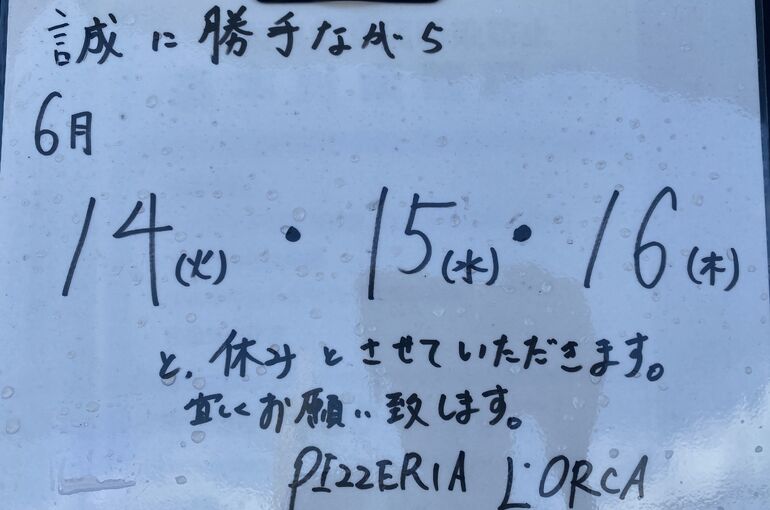 誠に勝手ながら
6月
14(火)・15(水)・16(木)
と、休みとさせていただきます。
宜しくお願い致します。
PIZZERIA L'ORCA